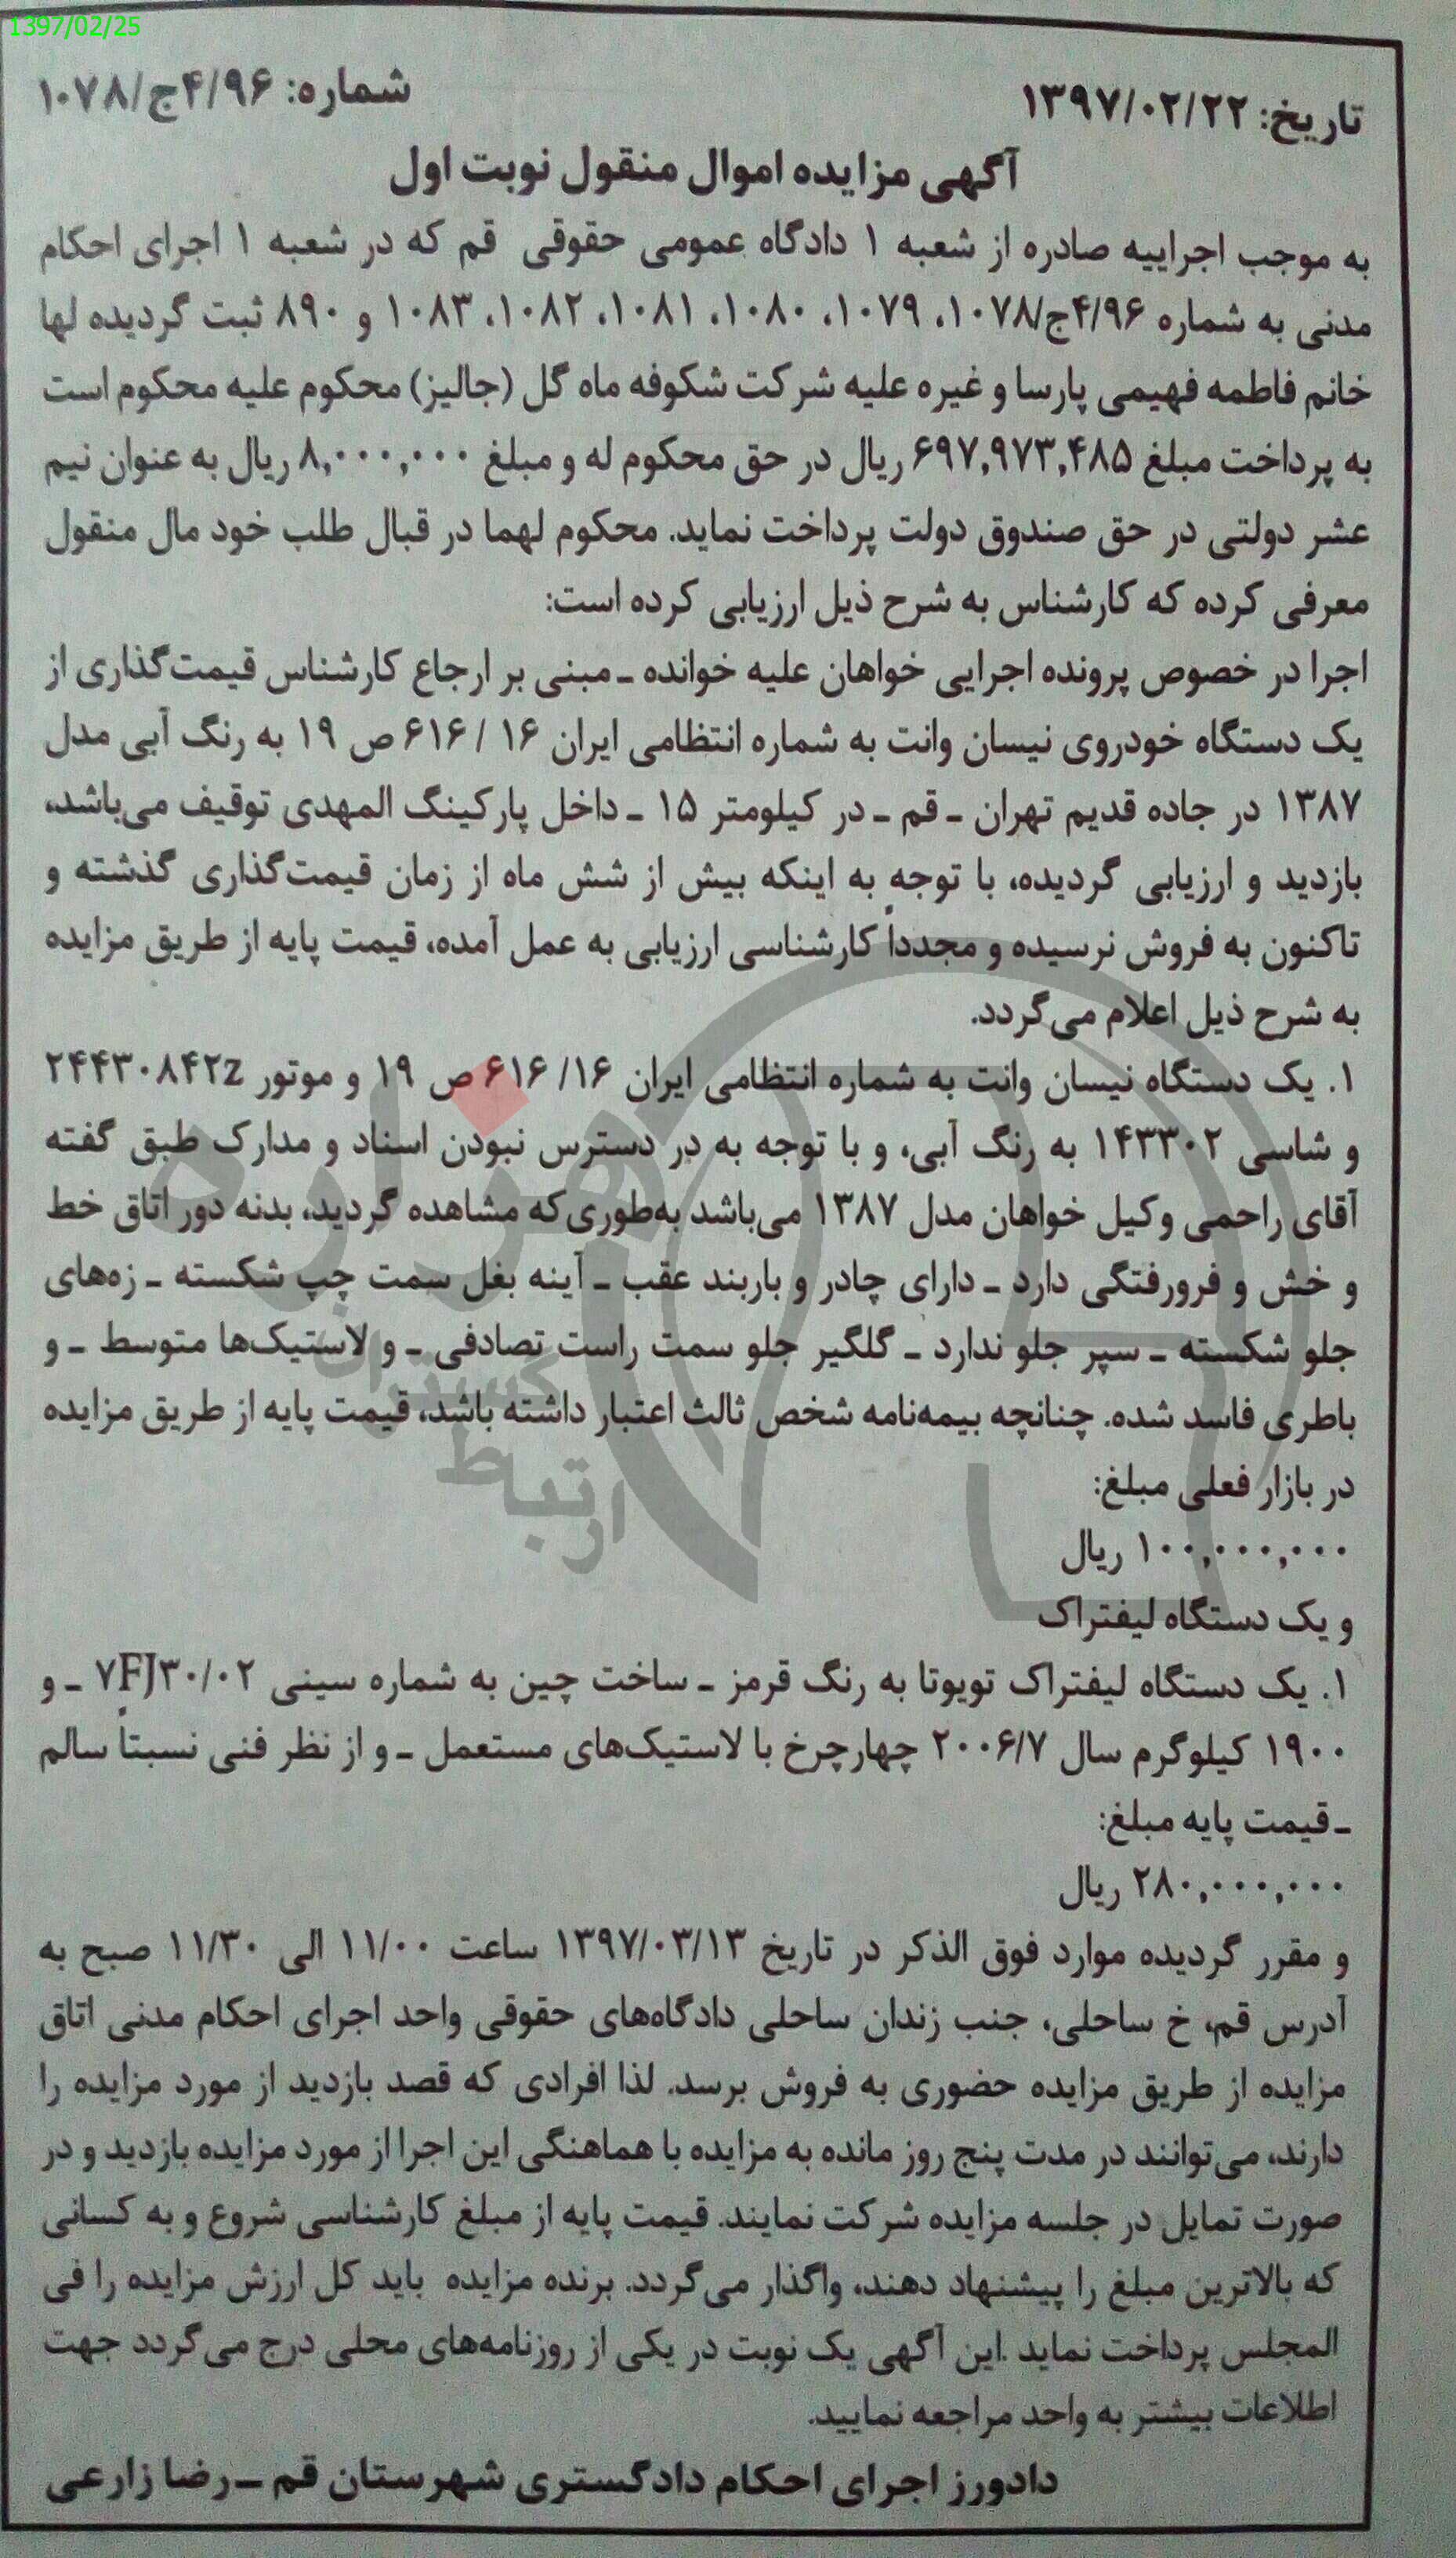 1397/02/25
تاریخ: ۱۳۹۷/۰۲/۲۲
شماره: ۴/۹۶ج/۱۰۷۸
آگهی مزایده اموال منقول نوبت اول
به موجب اجراییه صادره از شعبه ۱ دادگاه عمومی حقوقی قم که در شعبه ۱ اجرای احکام
مدنی به شماره ۴/۹۶ج/۱۰۷۸، ۱۰۷۹، ۱۰۸۰، ۱۰۸۱، ۱۰۸۲، ۱۰۸۳ و ۸۹۰ ثبت گردیده لها
خانم فاطمه فهیمی پارسا و غیره علیه شرکت شکوفه ماه گل (جالیز) محکوم علیه محکوم است
به پرداخت مبلغ ۶۹۷,۹۷۳,۴۸۵ ریال در حق محکوم له و مبلغ ۸,۰۰۰,۰۰۰ ریال به عنوان نیم
عشر دولتی در حق صندوق دولت پرداخت نماید. محکوم لهما در قبال طلب خود مال منقول
معرفی کرده که کارشناس به شرح ذیل ارزیابی کرده است:
اجرا در خصوص پرونده اجرایی خواهان علیه خوانده ـ مبنی بر ارجاع کارشناس قیمت‌گذاری از
یک دستگاه خودروی نیسان وانت به شماره انتظامی ایران ۱۶ / ۶۱۶ ص ۱۹ به رنگ آبی مدل
۱۳۸۷ در جاده قدیم تهران ـ قم ـ در کیلومتر ۱۵ ـ داخل پارکینگ المهدی توقیف می‌باشد،
بازدید و ارزیابی گردیده، با توجه به اینکه بیش از شش ماه از زمان قیمت‌گذاری گذشته و
تاکنون به فروش نرسیده و مجدداً کارشناسی ارزیابی به عمل آمده، قیمت پایه از طریق مزایده
به شرح ذیل اعلام می‌گردد.
۱. یک دستگاه نیسان وانت به شماره انتظامی ایران ۱۶/ ۶۱۶ ص ۱۹ و موتور ۲۴۴۳۰۸۴۲z
و شاسی ۱۴۳۳۰۲ به رنگ آبی، و با توجه به در دسترس نبودن اسناد و مدارک طبق گفته
آقای راحمی وکیل خواهان مدل ۱۳۸۷ می‌باشد به‌طوری‌که مشاهده گردید، بدنه دور اتاق خط
و خش و فرورفتگی دارد ـ دارای چادر و باربند عقب ـ آینه بغل سمت چپ شکسته ـ زه‌های
جلو شکسته ـ سپر جلو ندارد ـ گلگیر جلو سمت راست تصادفی ـ و لاستیک‌ها متوسط ـ و
باطری فاسد شده. چنانچه بیمه‌نامه شخص ثالث اعتبار داشته باشد، قیمت پایه از طریق مزایده
در بازار فعلی مبلغ:
۱۰۰,۰۰۰,۰۰۰ ریال
و یک دستگاه لیفتراک
۱. یک دستگاه لیفتراک تویوتا به رنگ قرمز ـ ساخت چین به شماره سینی ۷FJ۳۰/۰۲ ـ و
۱۹۰۰ کیلوگرم سال ۲۰۰۶/۷ چهارچرخ با لاستیک‌های مستعمل ـ و از نظر فنی نسبتاً سالم
ـ قیمت پایه مبلغ:
۲۸۰,۰۰۰,۰۰۰ ریال
و مقرر گردیده موارد فوق الذکر در تاریخ ۱۳۹۷/۰۳/۱۳ ساعت ۱۱/۰۰ الی ۱۱/۳۰ صبح به
آدرس قم، خ ساحلی، جنب زندان ساحلی دادگاه‌های حقوقی واحد اجرای احکام مدنی اتاق
مزایده از طریق مزایده حضوری به فروش برسد. لذا افرادی که قصد بازدید از مورد مزایده را
دارند، می‌توانند در مدت پنج روز مانده به مزایده با هماهنگی این اجرا از مورد مزایده بازدید و در
صورت تمایل در جلسه مزایده شرکت نمایند. قیمت پایه از مبلغ کارشناسی شروع و به کسانی
که بالاترین مبلغ را پیشنهاد دهند، واگذار می‌گردد. برنده مزایده باید کل ارزش مزایده را فی
المجلس پرداخت نماید .این آگهی یک نوبت در یکی از روزنامه‌های محلی درج می‌گردد جهت
اطلاعات بیشتر به واحد مراجعه نمایید.
دادورز اجرای احکام دادگستری شهرستان قم ـ رضا زارعی
هزاره
گستران
ارتباط